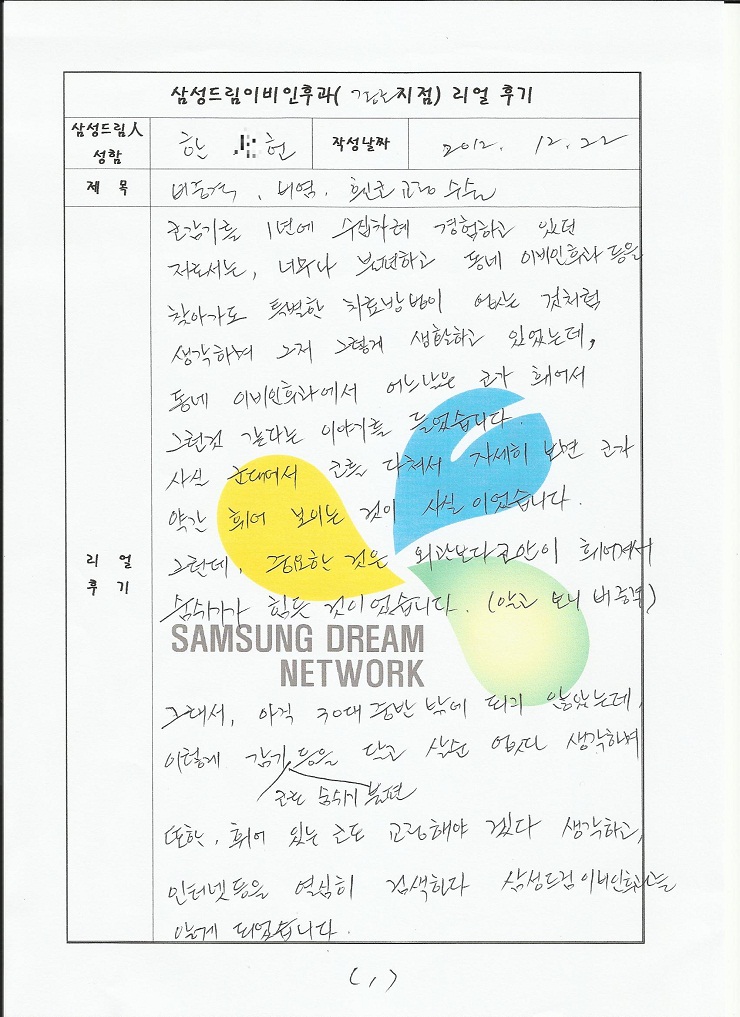 삼성드림이비인후과( 강남지점) 리얼 후기
삼성드림人
성함
한 헌
작성날짜
2012. 12. 22
제 목
비중격, 비염, 휜코 교정 수술
코감기를 1년에 수십차례 경험하고 있던
저로서는, 너무나 불편하고 동네 이비인후과 등을
찾아가도 특별한 치료방법이 없는 것처럼
생각하며 그저 그렇게 생활하고 있었는데,
동네 이비인후과에서 어느날은 코가 휘어서
그런것 같다는 이야기를 들었습니다.
사실 군대에서 코를 다쳐서 자세히 보면 코가
약간 휘어 보이는 것이 사실이었습니다.
그런데, 중요한 것은 외관보다 코안이 휘어져서
숨쉬기가 힘든 것이었습니다. (알고 보니 비중격)
SAMSUNG DREAM
NETWORK
리 얼
후 기
그래서, 아직 30대 중반 밖에 되지 않았는데,
이렇게 감기 등을 달고 살순 없다 생각하며
코로 숨쉬기 불편
또한, 휘어 있는 코도 교정해야 겠다 생각하고,
인터넷등을 열심히 검색하다 삼성드림이비인후과를
알게 되었습니다.
(1)